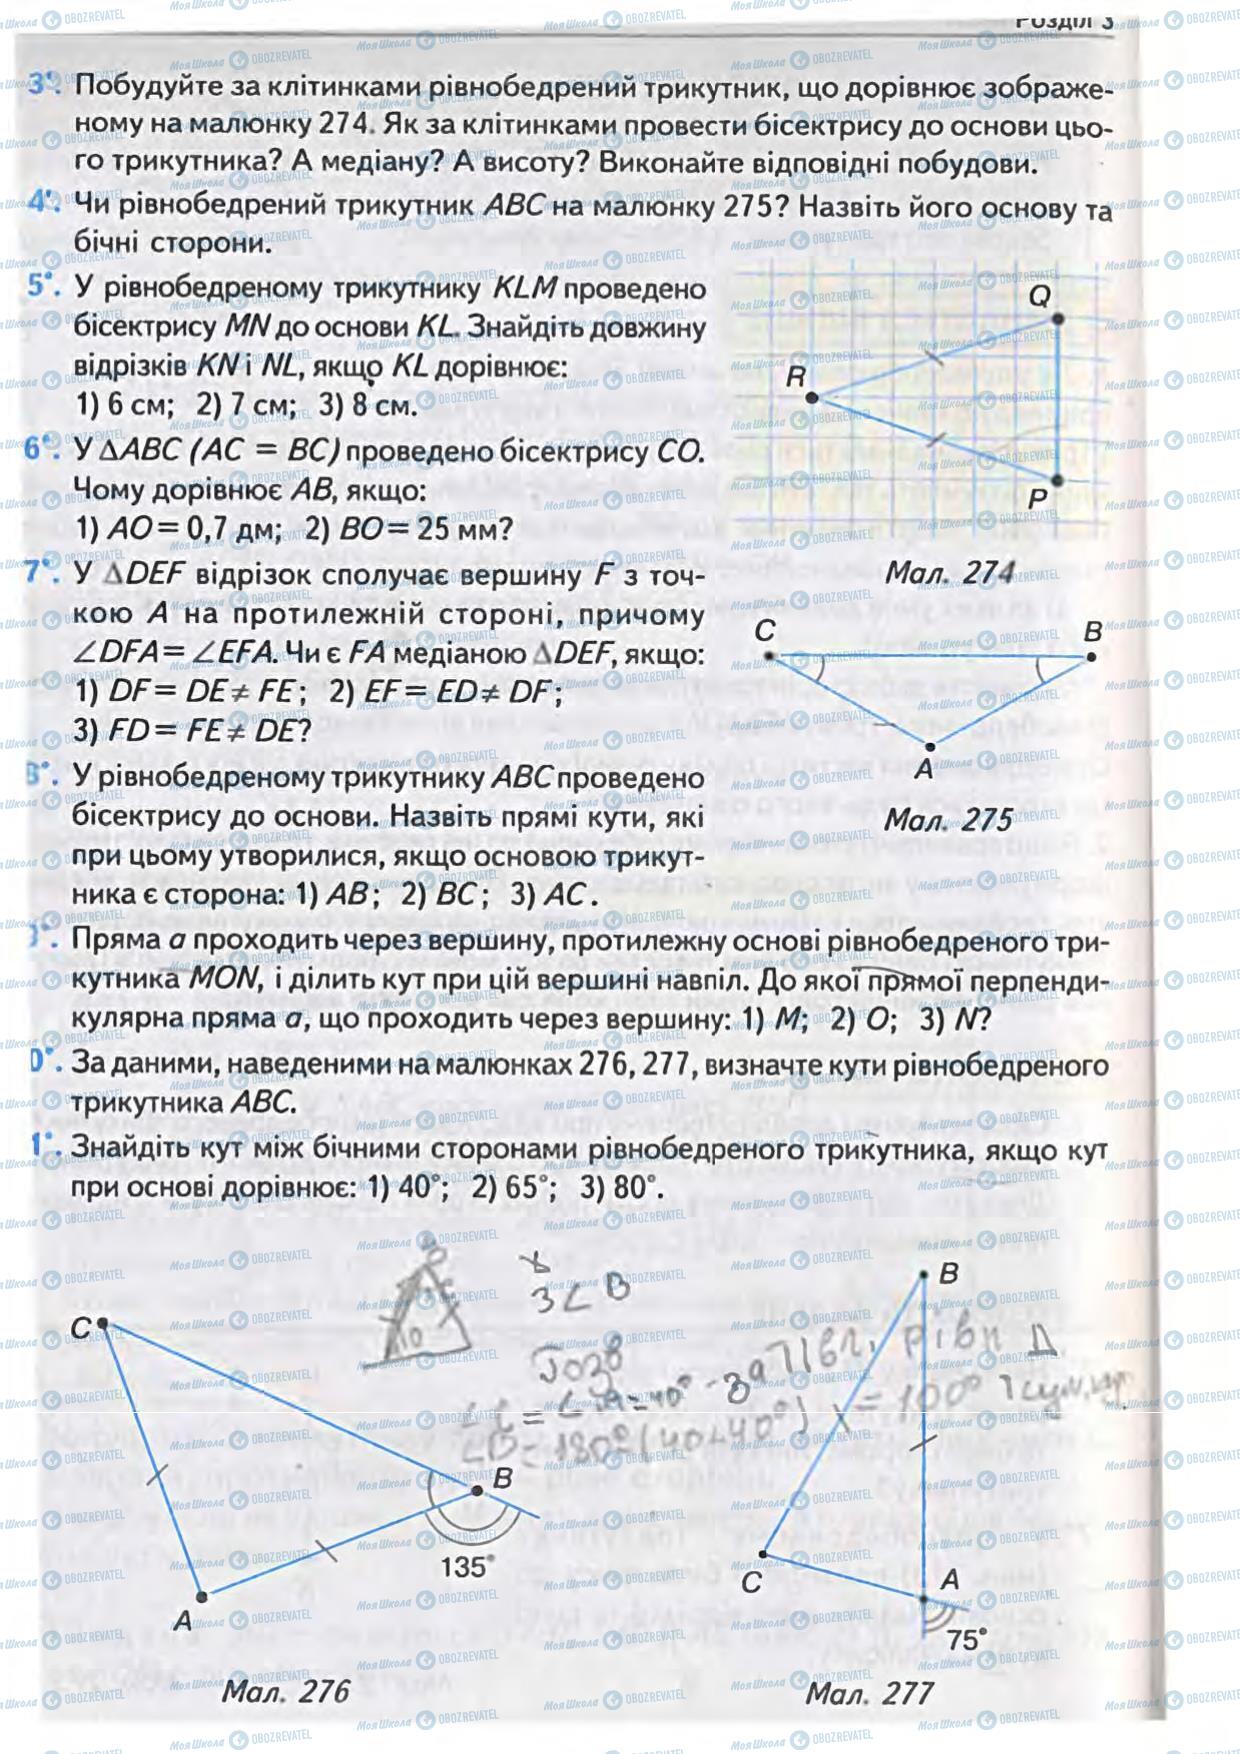 Розділ 3
3°. Побудуйте за клітинками рівнобедрений трикутник, що дорівнює зображе-
ному на малюнку 274. Як за клітинками провести бісектрису до основи цьо-
го трикутника? А медіану? А висоту? Виконайте відповідні побудови.
4°. Чи рівнобедрений трикутник ABC на малюнку 275? Назвіть його основу та
бічні сторони.
5°. У рівнобедреному трикутнику KLM проведено
бісектрису MN до основи KL. Знайдіть довжину
відрізків KN і NL, якщо KL дорівнює:
1) 6 см; 2) 7 см; 3) 8 см.
6°. У △ABC (AC = BC) проведено бісектрису CO.
Чому дорівнює AB, якщо:
1) AO = 0,7 дм; 2) BO = 25 мм?
7°. У △DEF відрізок сполучає вершину F з точ-
кою A на протилежній стороні, причому
∠DFA = ∠EFA. Чи є FA медіаною △DEF, якщо:
1) DF = DE ≠ FE; 2) EF = ED ≠ DF;
3) FD = FE ≠ DE?
8°. У рівнобедреному трикутнику ABC проведено
бісектрису до основи. Назвіть прямі кути, які
при цьому утворилися, якщо основою трикут-
ника є сторона: 1) AB; 2) BC; 3) AC.
Q
R
P
Мал. 274
C B
A
Мал. 275
Пряма a проходить через вершину, протилежну основі рівнобедреного три-
кутника MON, і ділить кут при цій вершині навпіл. До якої прямої перпенди-
кулярна пряма a, що проходить через вершину: 1) M; 2) O; 3) N?
0°. За даними, наведеними на малюнках 276, 277, визначте кути рівнобедреного
трикутника ABC.
1°. Знайдіть кут між бічними сторонами рівнобедреного трикутника, якщо кут
при основі дорівнює: 1) 40°; 2) 65°; 3) 80°.
∠B
C
B
135°
A
Мал. 276
B
C
A
75°
Мал. 277
МояШкола OBOZREVATEL